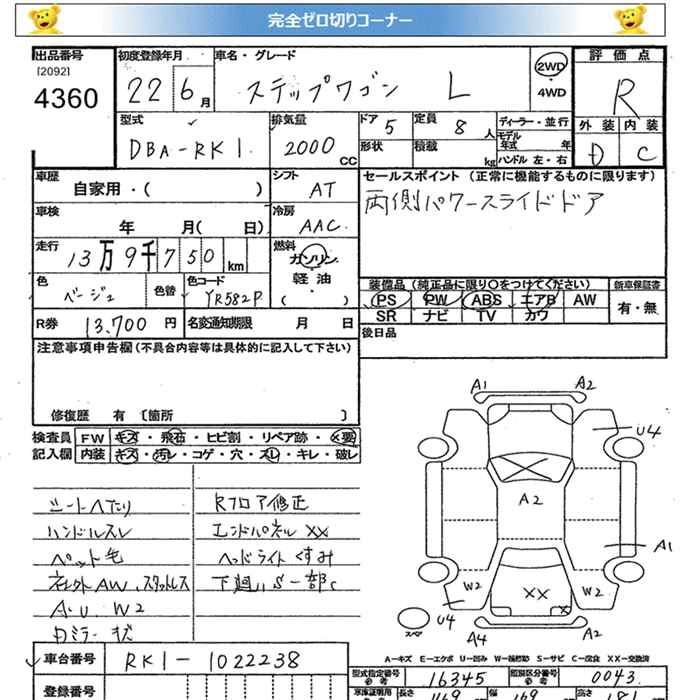 完全ゼロ切りコーナー
出品番号 初度登録年月 車名・グレード 2WD 評価点
[2092]
4360 22 6月 ステップワゴン L 4WD R
型式 排気量 ドア 定員 ディーラー・並行 外装 内装
DBA-RK1 2000cc 5 8人 モデル年式 年 D C
形状 積載 kg ハンドル 左・右
車歴 シフト セールスポイント(正常に機能するものに限ります)
自家用・( ) AT 両側パワースライドドア
車検 冷房
年 月( 日) AAC
走行 燃料
13万9千750km ガソリン
軽油
( )
色 色替 色コード 装備品(純正品に限り○をつけてください) 新車保証書
ベージュ YR582P PS PW ABS エアB AW 有・無
SR ナビ TV カワ
R券 13,700円 名変通知期限 月 日 後日品
注意事項申告欄(不具合内容等は具体的に記入して下さい)
修復歴 有 [箇所 ]
検査員 FW キズ・飛石・ヒビ割・リペア跡・×要
記入欄 内装 キズ・汚レ・コゲ・穴・スレ・キレ・破レ
シートヘたり Rフロア修正
ハンドルスレ エンドパネルXX
ペット毛 ヘッドライトくすみ
社外AW、スタッドレス 下廻りS一部C
A.U.W2
A1 A2
U4
A2
A1
W2 XX W2
X
U4
スペア A4 A2
A-キズ E-エクボ U-凹み W-補修跡 S-サビ C-腐食 XX-交換済
車台番号 RK1-1022238
型式指定番号 16345 類別区分番号 0043
登録番号 長さ 469 幅 169 高さ 181